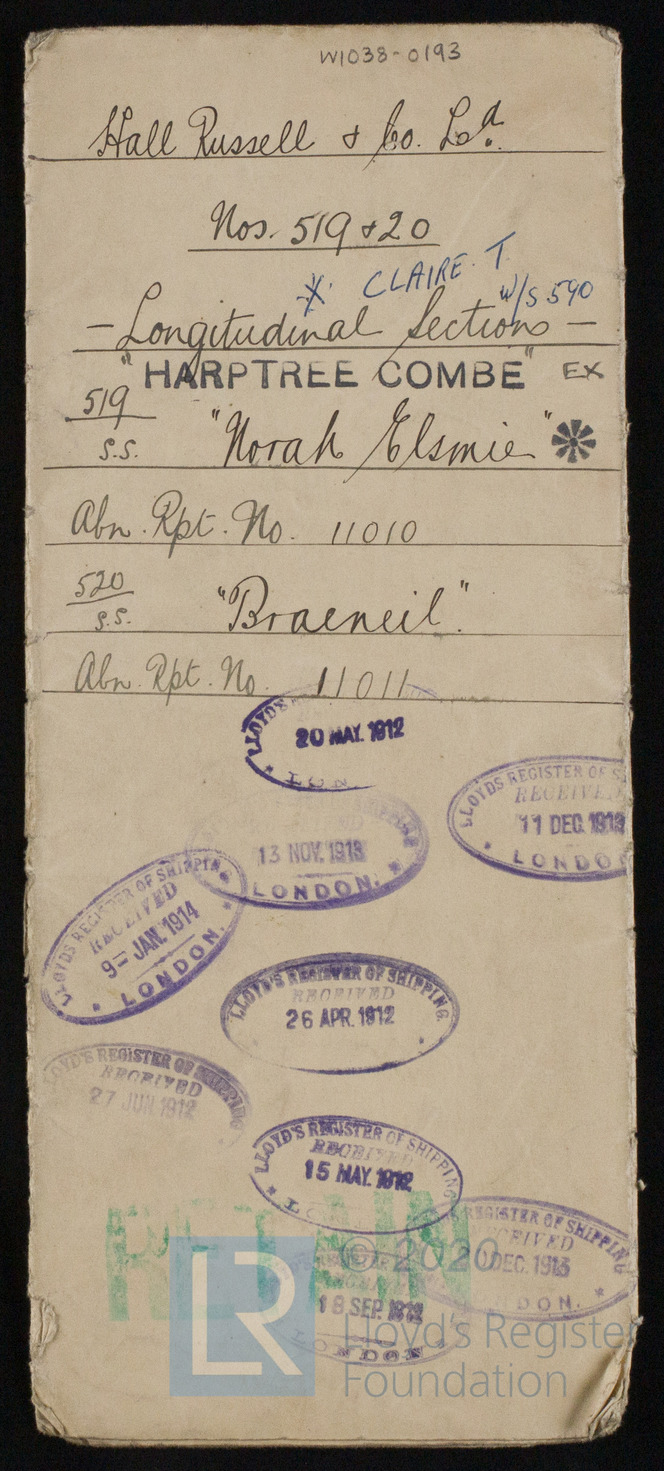 W1038-0193
Hall Russell & Co. Ld.
Nos. 519 & 20
X CLAIRE T
W/S 590
- Longitudinal Sections -
"HARPTREE COMBE" EX
519
S.S. "Norah Elsmie"
Abn. Rpt. No. 11010
520
S.S. "Braeneil".
Abn. Rpt. No. 11011
LLOYD'S
20 MAY. 1912
LON
LLOYDS REGISTER OF S
RECEIVED
11 DEC. 1913
LONDO
SHIPPING
13 NOV. 1913
LONDON.
LLOYDS REGISTER OF SHIPPIN
RECEIVED
9 - JAN. 1914
LONDON.
LLOYD'S REGISTER OF SHIPPING.
RECEIVED
26 APR. 1912
LLOYD'S REGISTER OF SHIPPING
RECEIVED
27 JUN 1912
LLOYD'S REGISTER OF SHIPPING
RECEIVED
15 MAY. 1912
L
RETAIN
REGISTER OF SHIPPING
CEIVED
DEC. 1913
DON.
18 SEP. 1912
LONDON
LR
© 2020
Lloyd's Register
Foundation